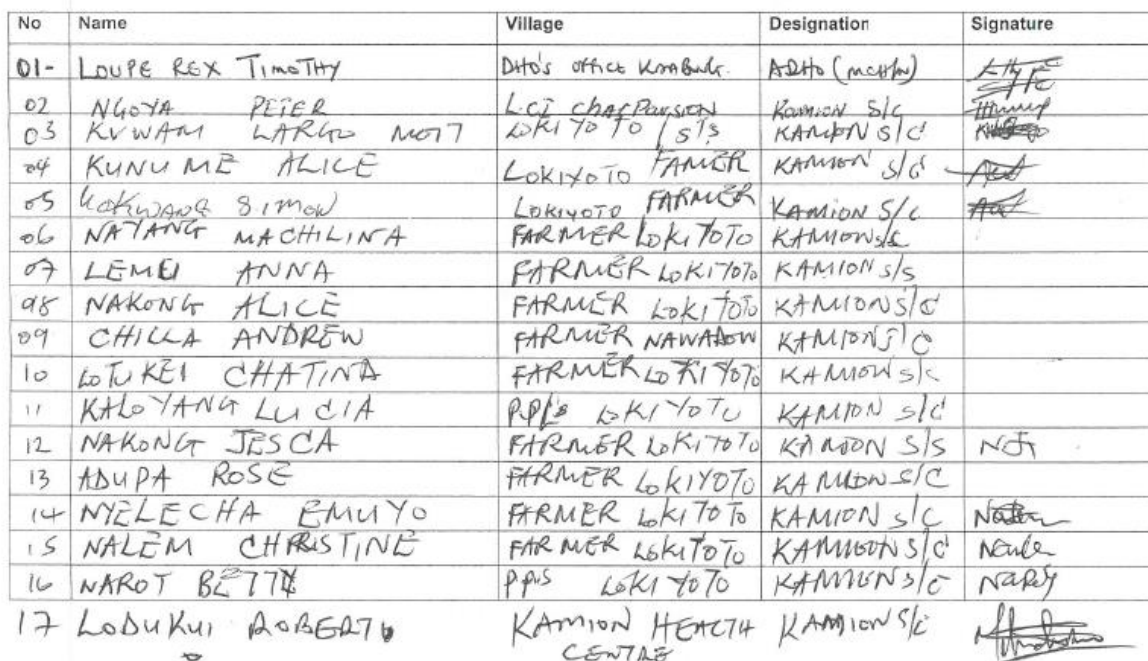 No Name Village Designation Signature
01- LOUPE REX TIMOTHY DHO'S OFFICE KAABONG. ADHO (MCH/N)
02 NGOYA PETER L.CI CHAIRPERSON KAMION S/C
03 KUWAM LARGO MOTT LOKIYOTO / S'S KAMION S/C
04 KUNUME ALICE LOKIYOTO FAMER KAMION S/C
05 LOKWANG SIMON LOKIYOTO FARMER KAMION S/C
06 NAYANG MACHILINA FARMER LOKITOTO KAMION S/C
07 LEMU ANNA FARMER LOKITOTO KAMION S/S
08 NAKONG ALICE FARMER LOKITOTO KAMION S/C
09 CHILLA ANDREW FARMER NAWADOW KAMION S/C
10 LOTUKEI CHATINA FARMER LOKIYOTO KAMION S/C
11 KALOYANG LUCIA P.P/S LOKIYOTO KAMION S/C
12 NAKONG JESCA FARMER LOKITOTO KAMION S/S
13 ADUPA ROSE FARMER LOKIYOTO KAMION S/C
14 NYELECHA EMUYO FARMER LOKITOTO KAMION S/C
15 NALEM CHRISTINE FARMER LOKITOTO KAMION S/C
16 NAROT BETTY PP/S LOKIYOTO KAMION S/C
17 LODUKUI ROBERT KAMION HEALTH KAMION S/C
CENTRE